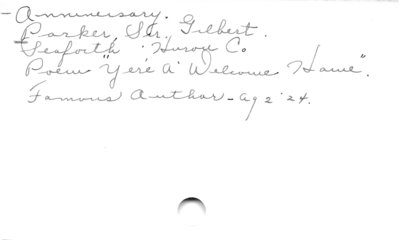 - Anniversary.
Parker, Sir, Gilbert.
Seaforth Huron C.
Poem "Yere A Welcome Hame".
Famous Author - ag 2 '24.